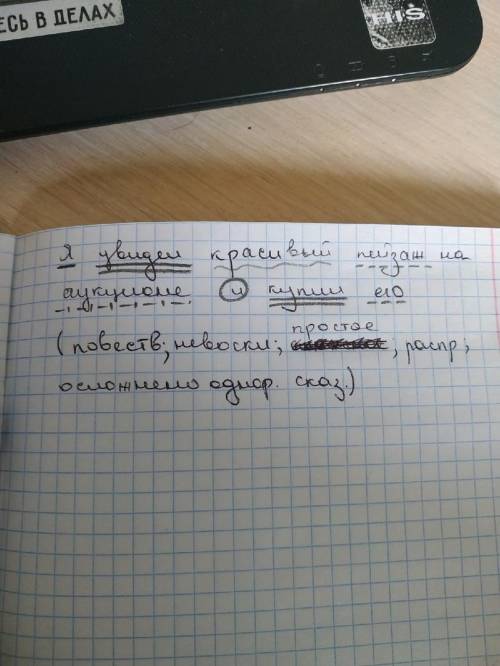 ЕСЬ В ДЕЛАХ
HIS
Я увидел красивый пейзаж на
аукционе и купил его
(повеств; невоскл; простое; распр;
осложнено однор. сказ.)